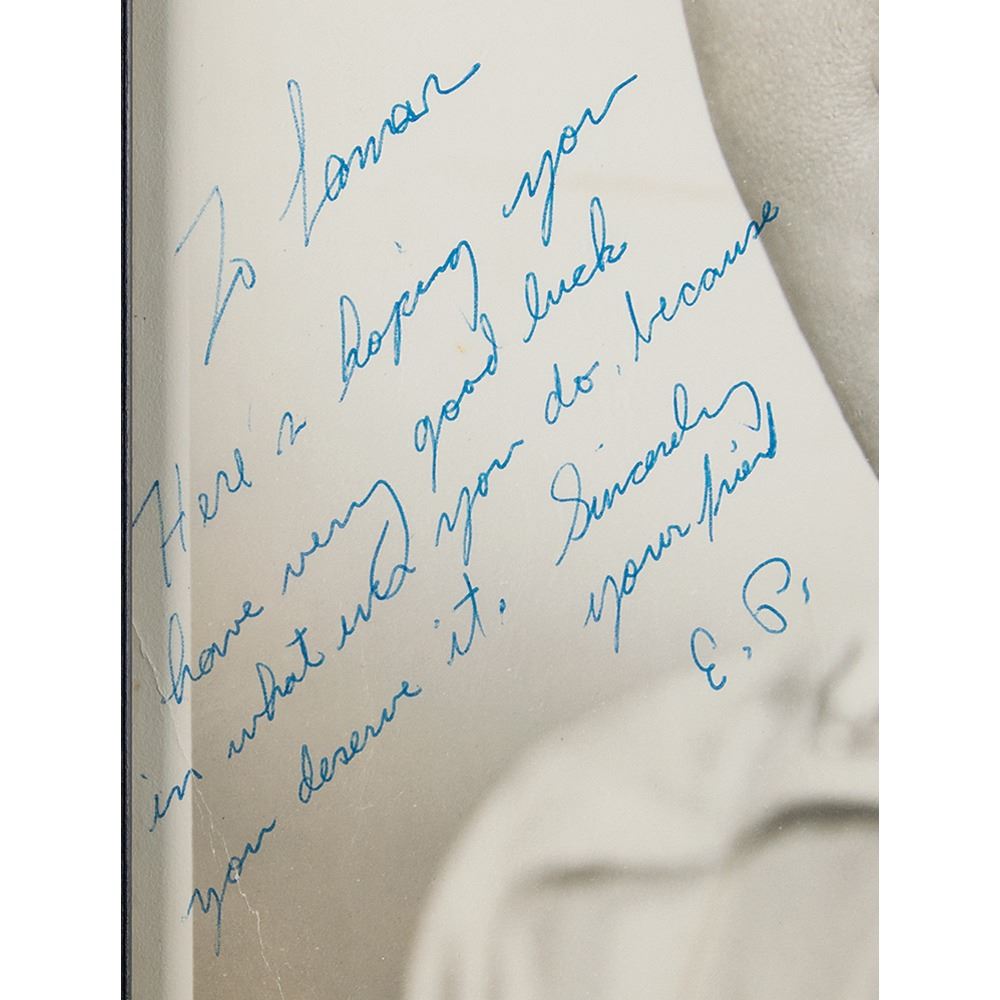 To Lamar
Here's hoping you
have very good luck
in what ever you do, because
you deserve it. Sincerely
your friend
E.P.